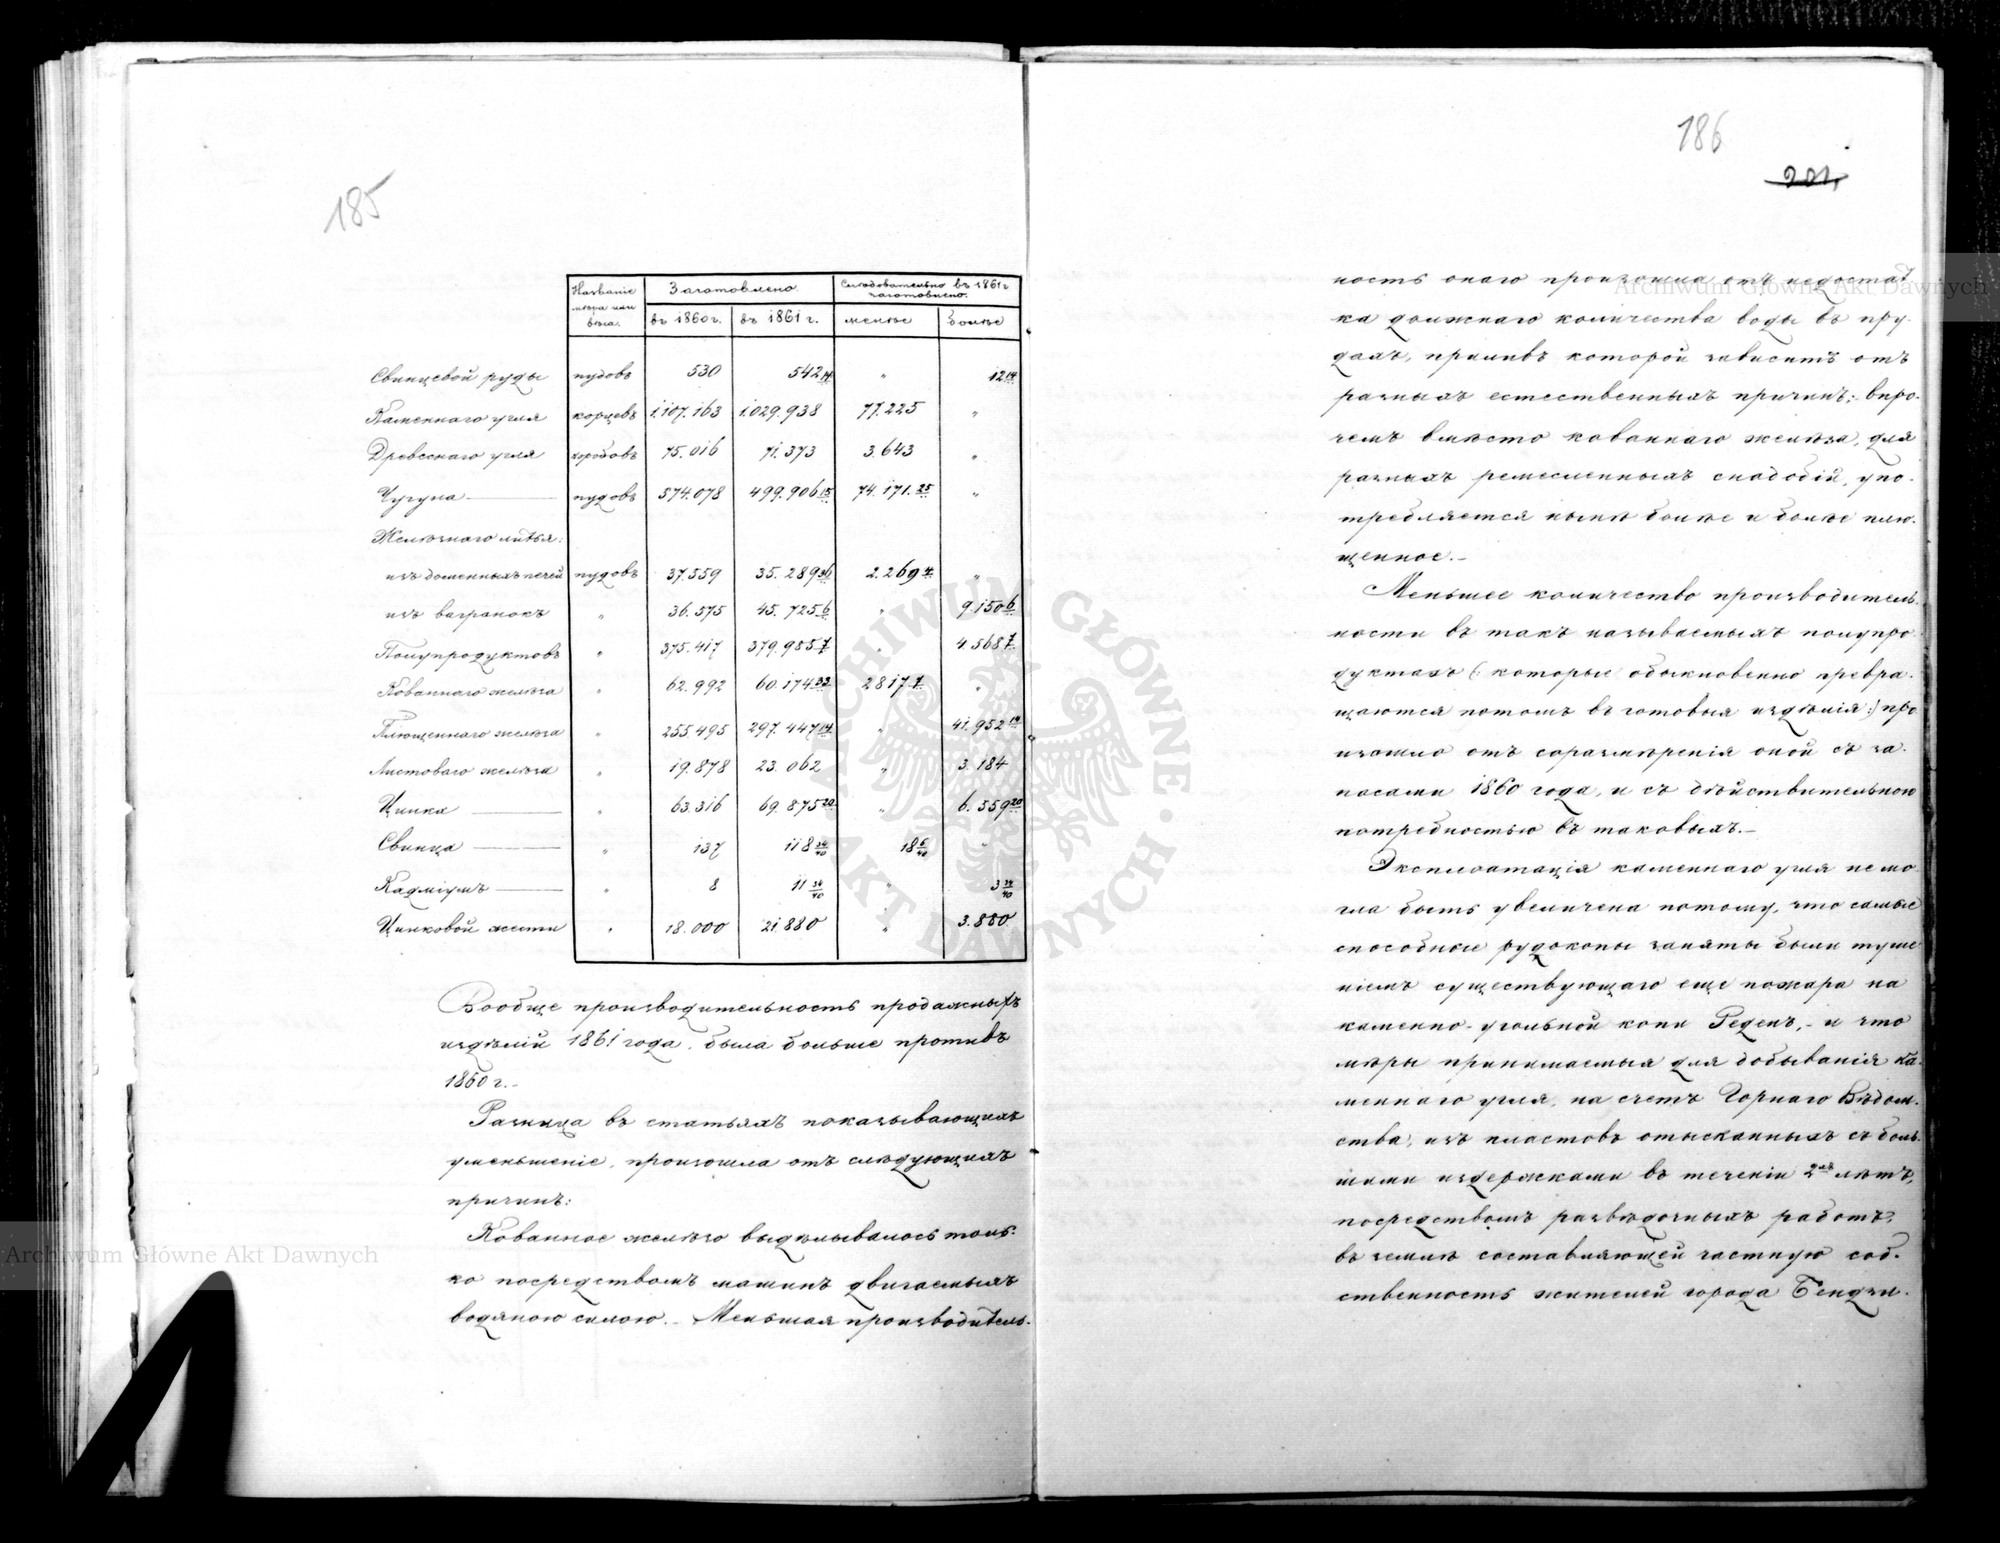 185
Названіе мѣръ или вѣса. | Заготовлено | Слѣдовательно въ 1861 г. заготовлено.
въ 1860 г. | въ 1861 г. | менѣе | болѣе
Свинцевой руды | пудовъ | 530 | 542 14 | " | 12 14
Каменнаго угля | корцевъ | 1.107.163 | 1.029.938 | 77.225 | "
Древеснаго угля | коробовъ | 75.016 | 71.373 | 3.643 | "
Чугуна | пудовъ | 574.078 | 499.906 15 | 74.171.25 | "
Желѣзнаго литья:
изъ доменныхъ печей | пудовъ | 37.559 | 35.289 36 | 2.269 4 | "
изъ вагранокъ | " | 36.575 | 45.725 6 | " | 9.150 6
Полупродуктовъ | " | 375.417 | 379.985 7 | " | 4.568 7
Кованнаго желѣза | " | 62.992 | 60.174 33 | 2817 7 | "
Плющеннаго желѣза | " | 255.495 | 297.447 14 | " | 41.952 14
Листоваго желѣза | " | 19.878 | 23.062 | " | 3.184
Цинка | " | 63.316 | 69.875 20 | " | 6.559 20
Свинца | " | 137 | 118 34/40 | 18 6/40 | "
Кадміумъ | " | 8 | 11 34/40 | " | 3 34/40
Цинковой жести | " | 18.000 | 21.880 | " | 3.880
Вообще производительность продажныхъ
издѣлій 1861 года, была больше противъ
1860 г.-
Разница въ статьяхъ показывающихъ
уменьшеніе, произошла отъ слѣдующихъ
причинъ:
Кованное желѣзо выдѣлывалось толь-
ко посредствомъ машинъ двигаемыхъ
водяною силою.- Меньшая производитель-
186
201,
ность онаго произошла отъ недостат-
ка должнаго количества воды въ пру-
дахъ, приливъ которой зависитъ отъ
разныхъ естественныхъ причинъ; впро-
чемъ вмѣсто кованнаго желѣза, для
разныхъ ремесленныхъ снадобій, упо-
требляется нынѣ болѣе и болѣе плю-
щенное.-
Меньшее количество производитель-
ности въ такъ называемыхъ полупро-
дуктахъ (: которые обыкновенно превра-
щаются потомъ въ готовыя издѣлія :) про
изошло отъ соразмѣренія оной съ за-
пасами 1860 года, и съ дѣйствительною
потребностью въ таковыхъ.-
Эксплоатація каменнаго угля не мо-
гла быть увеличена потому, что самые
способные рудокопы заняты были туше
ніемъ существующаго еще пожара на
каменно-угольной копи Реденъ,- и что
мѣры принимаемыя для добыванія ка-
меннаго угля, на счетъ Горнаго Вѣдом-
ства, изъ пластовъ отысканныхъ съ боль-
шими издержками въ теченіи 2хъ лѣтъ,
посредствомъ развѣдочныхъ работъ,
въ землѣ составляющей частную соб-
ственность жителей города Бендзи-
Archiwum Główne Akt Dawnych
Archiwum Główne Akt Dawnych
ARCHIWUM GŁÓWNE · AKT DAWNYCH ·